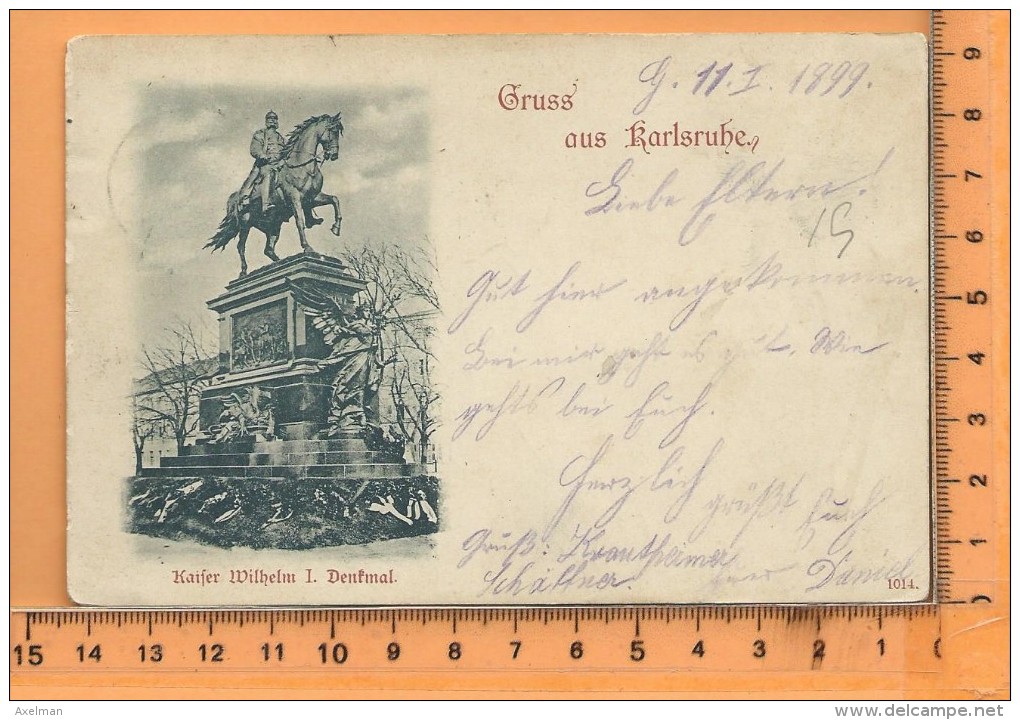 G. 11. I. 1899.
Gruss
aus Karlsruhe.
Liebe Eltern!
15
Gut hier angekommen.
Bei mir geht es gut. Wie
gehts bei Euch.
Herzlich
grüßt Euch
Gruß: Krautheimer
Euer Daniel
Schättner.
Kaiser Wilhelm I. Denkmal.
1014.
9
8
7
6
5
4
3
2
1
0
15 14 13 12 11 10 9 8 7 6 5 4 3 2 1 0
Axelman
www.delcampe.net